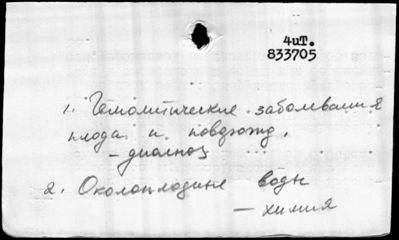 4 чит.
833705
1. Гемолитические заболевания
плода и новорожд.
– диагноз
2. Околоплодные воды
– химия